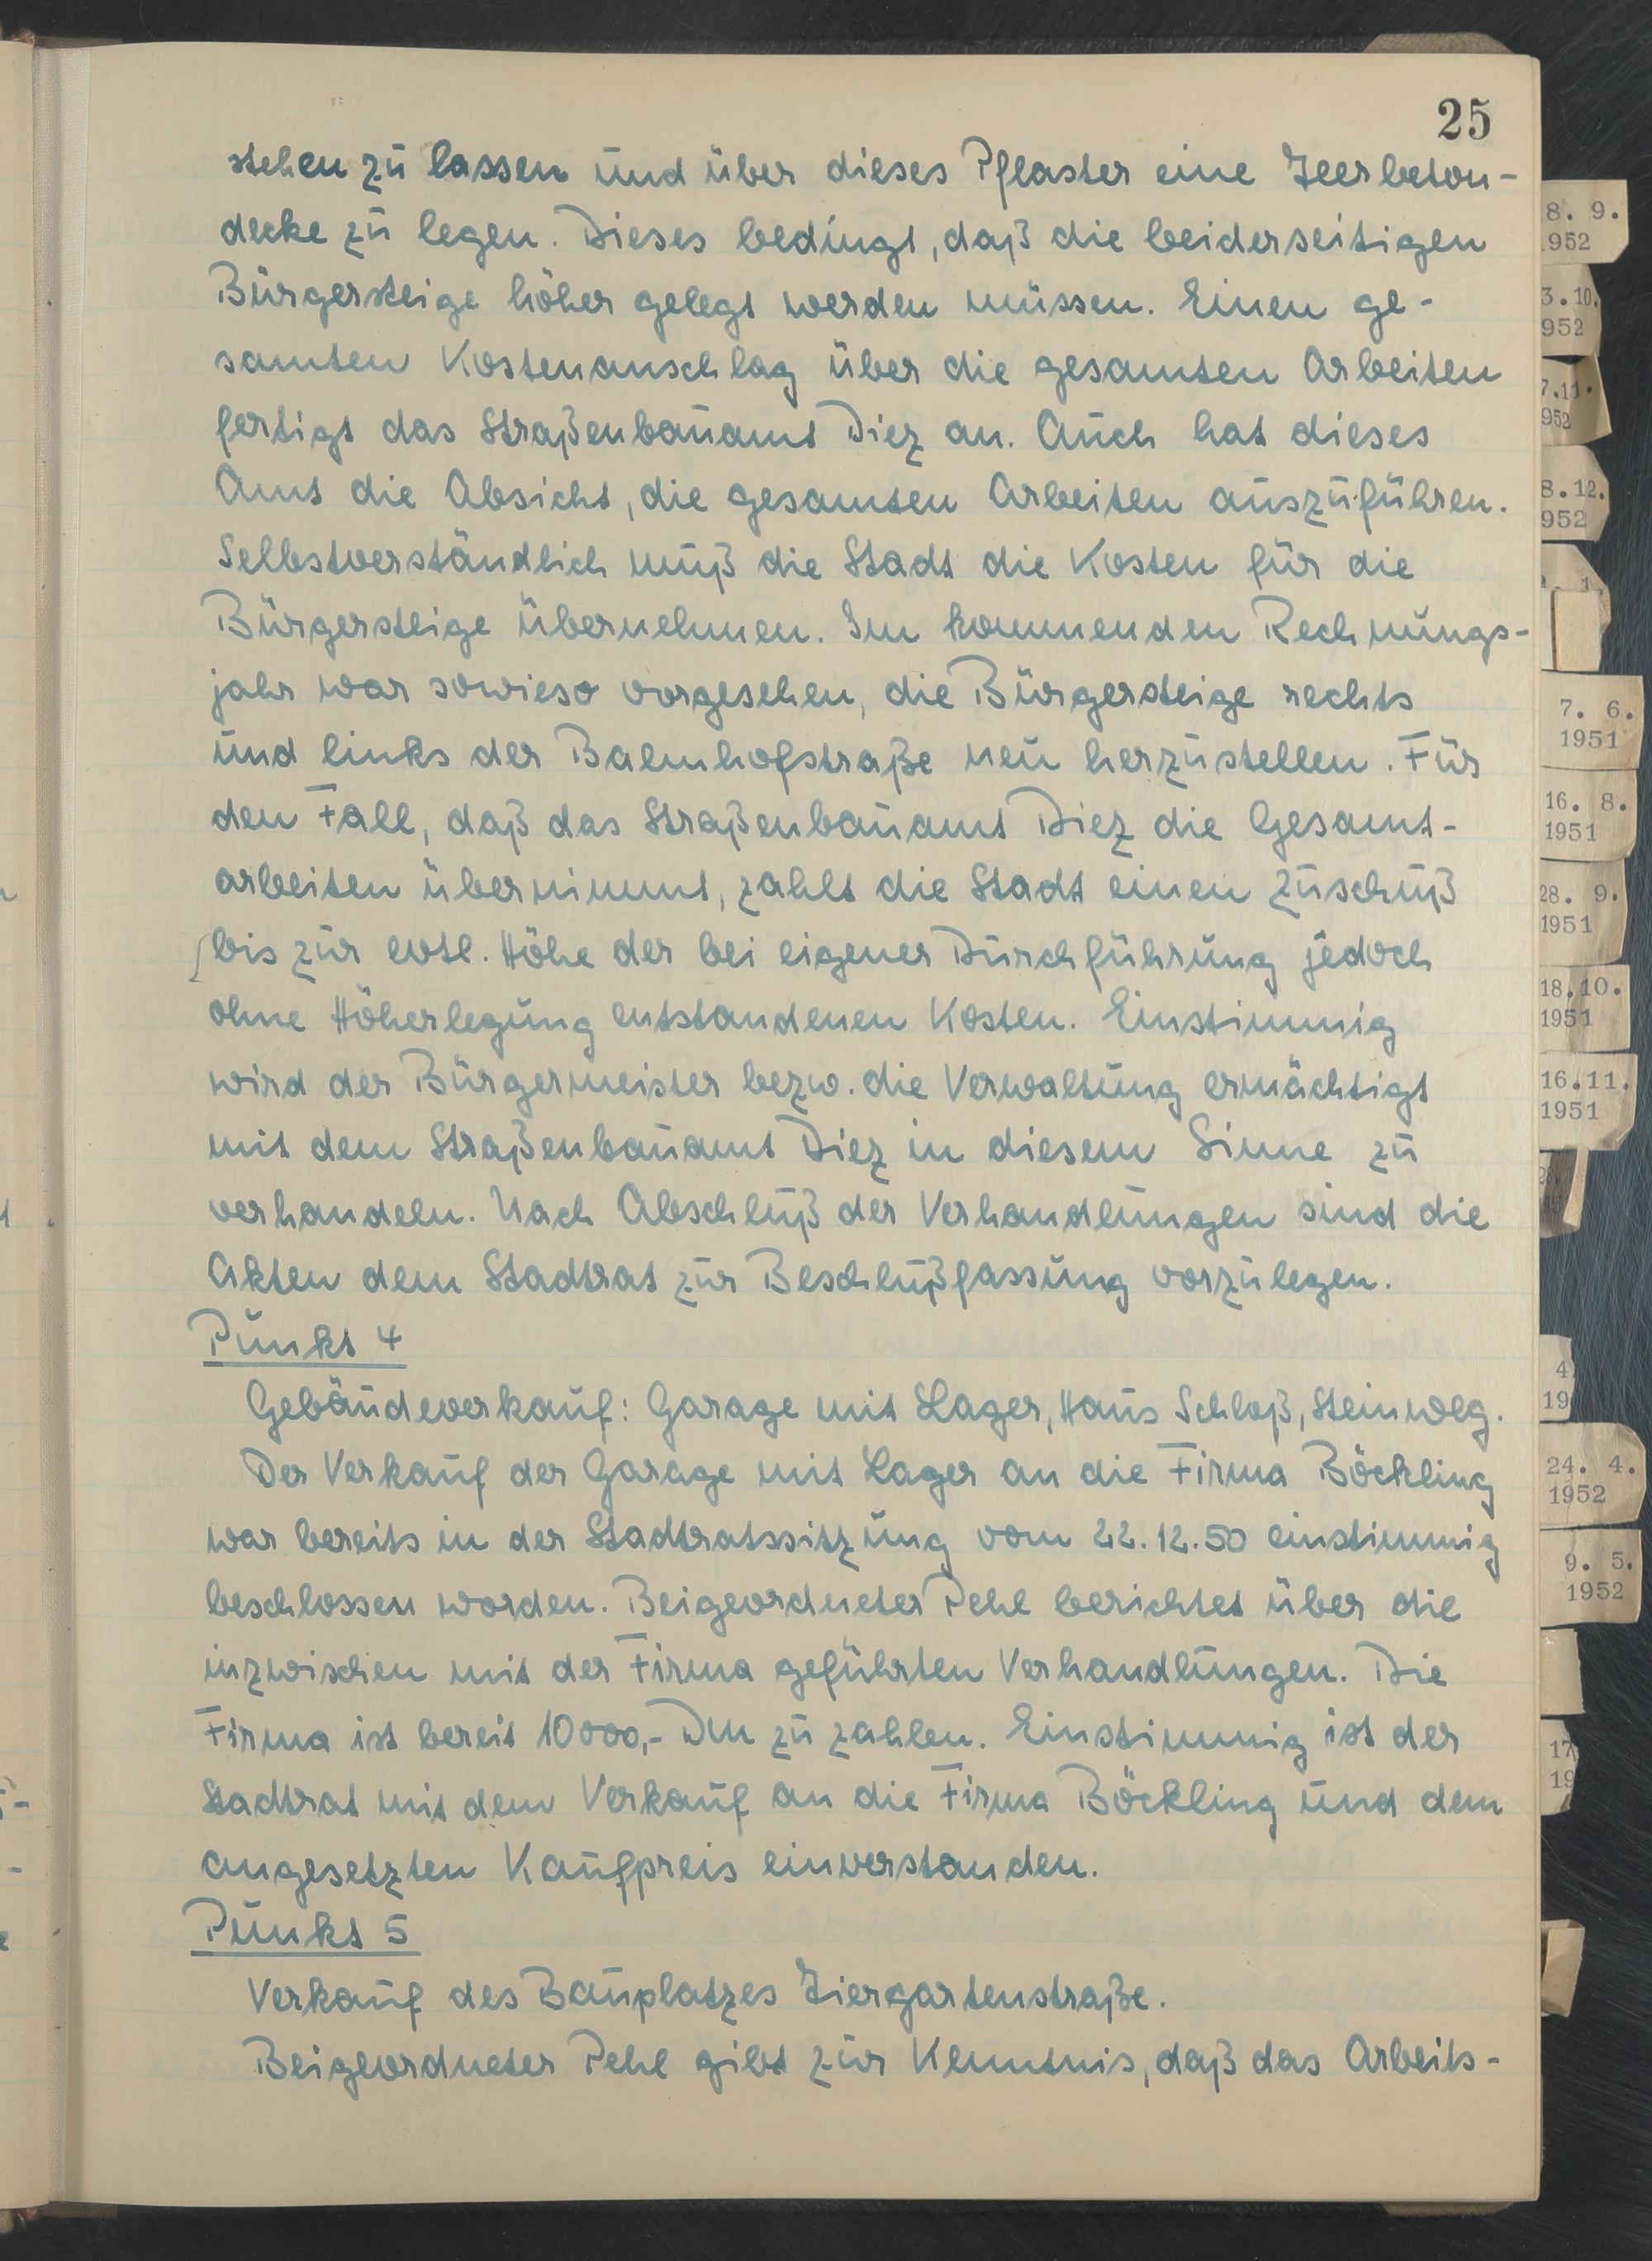 25
stehen zu lassen und über dieses Pflaster eine Teerbeton-
decke zu legen. Dieses bedingt, daß die beiderseitigen
Bürgersteige höher gelegt werden müssen. Einen ge-
samten Kostenanschlag über die gesamten Arbeiten
fertigt das Straßenbauamt Diez an. Auch hat dieses
Amt die Absicht, die gesamten Arbeiten auszuführen.
Selbstverständlich muß die Stadt die Kosten für die
Bürgersteige übernehmen. Im kommenden Rechnungs-
jahr war sowieso vorgesehen, die Bürgersteige rechts
und links der Bahnhofstraße neu herzustellen. Für
den Fall, daß das Straßenbauamt Diez die Gesamt-
arbeiten übernimmt, zahlt die Stadt einen Zuschuß
bis zur evtl. Höhe der bei eigener Durchführung jedoch
ohne Höherlegung entstandenen Kosten. Einstimmig
wird der Bürgermeister bezw. die Verwaltung ermächtigt
mit dem Straßenbauamt Diez in diesem Sinne zu
verhandeln. Nach Abschluß der Verhandlungen sind die
Akten dem Stadtrat zur Beschlußfassung vorzulegen.
Punkt 4
Gebäudeverkauf: Garage mit Lager, Haus Schloß, Steinweg.
Der Verkauf der Garage mit Lager an die Firma Böckling
war bereits in der Stadtratssitzung vom 22.12.50 einstimmig
beschlossen worden. Beigeordneter Pehl berichtet über die
inzwischen mit der Firma geführten Verhandlungen. Die
Firma ist bereit 10000,- DM zu zahlen. Einstimmig ist der
Stadtrat mit dem Verkauf an die Firma Böckling und dem
angesetzten Kaufpreis einverstanden.
Punkt 5
Verkauf des Bauplatzes Tiergartenstraße.
Beigeordneter Pehl gibt zur Kenntnis, daß das Arbeits-
8. 9.
1952
3.10.
952
7.11.
952
8.12.
952
7. 6.
1951
16. 8.
1951
28. 9.
1951
18.10.
1951
16.11.
1951
4
19
24. 4.
1952
9. 5.
1952
17
19